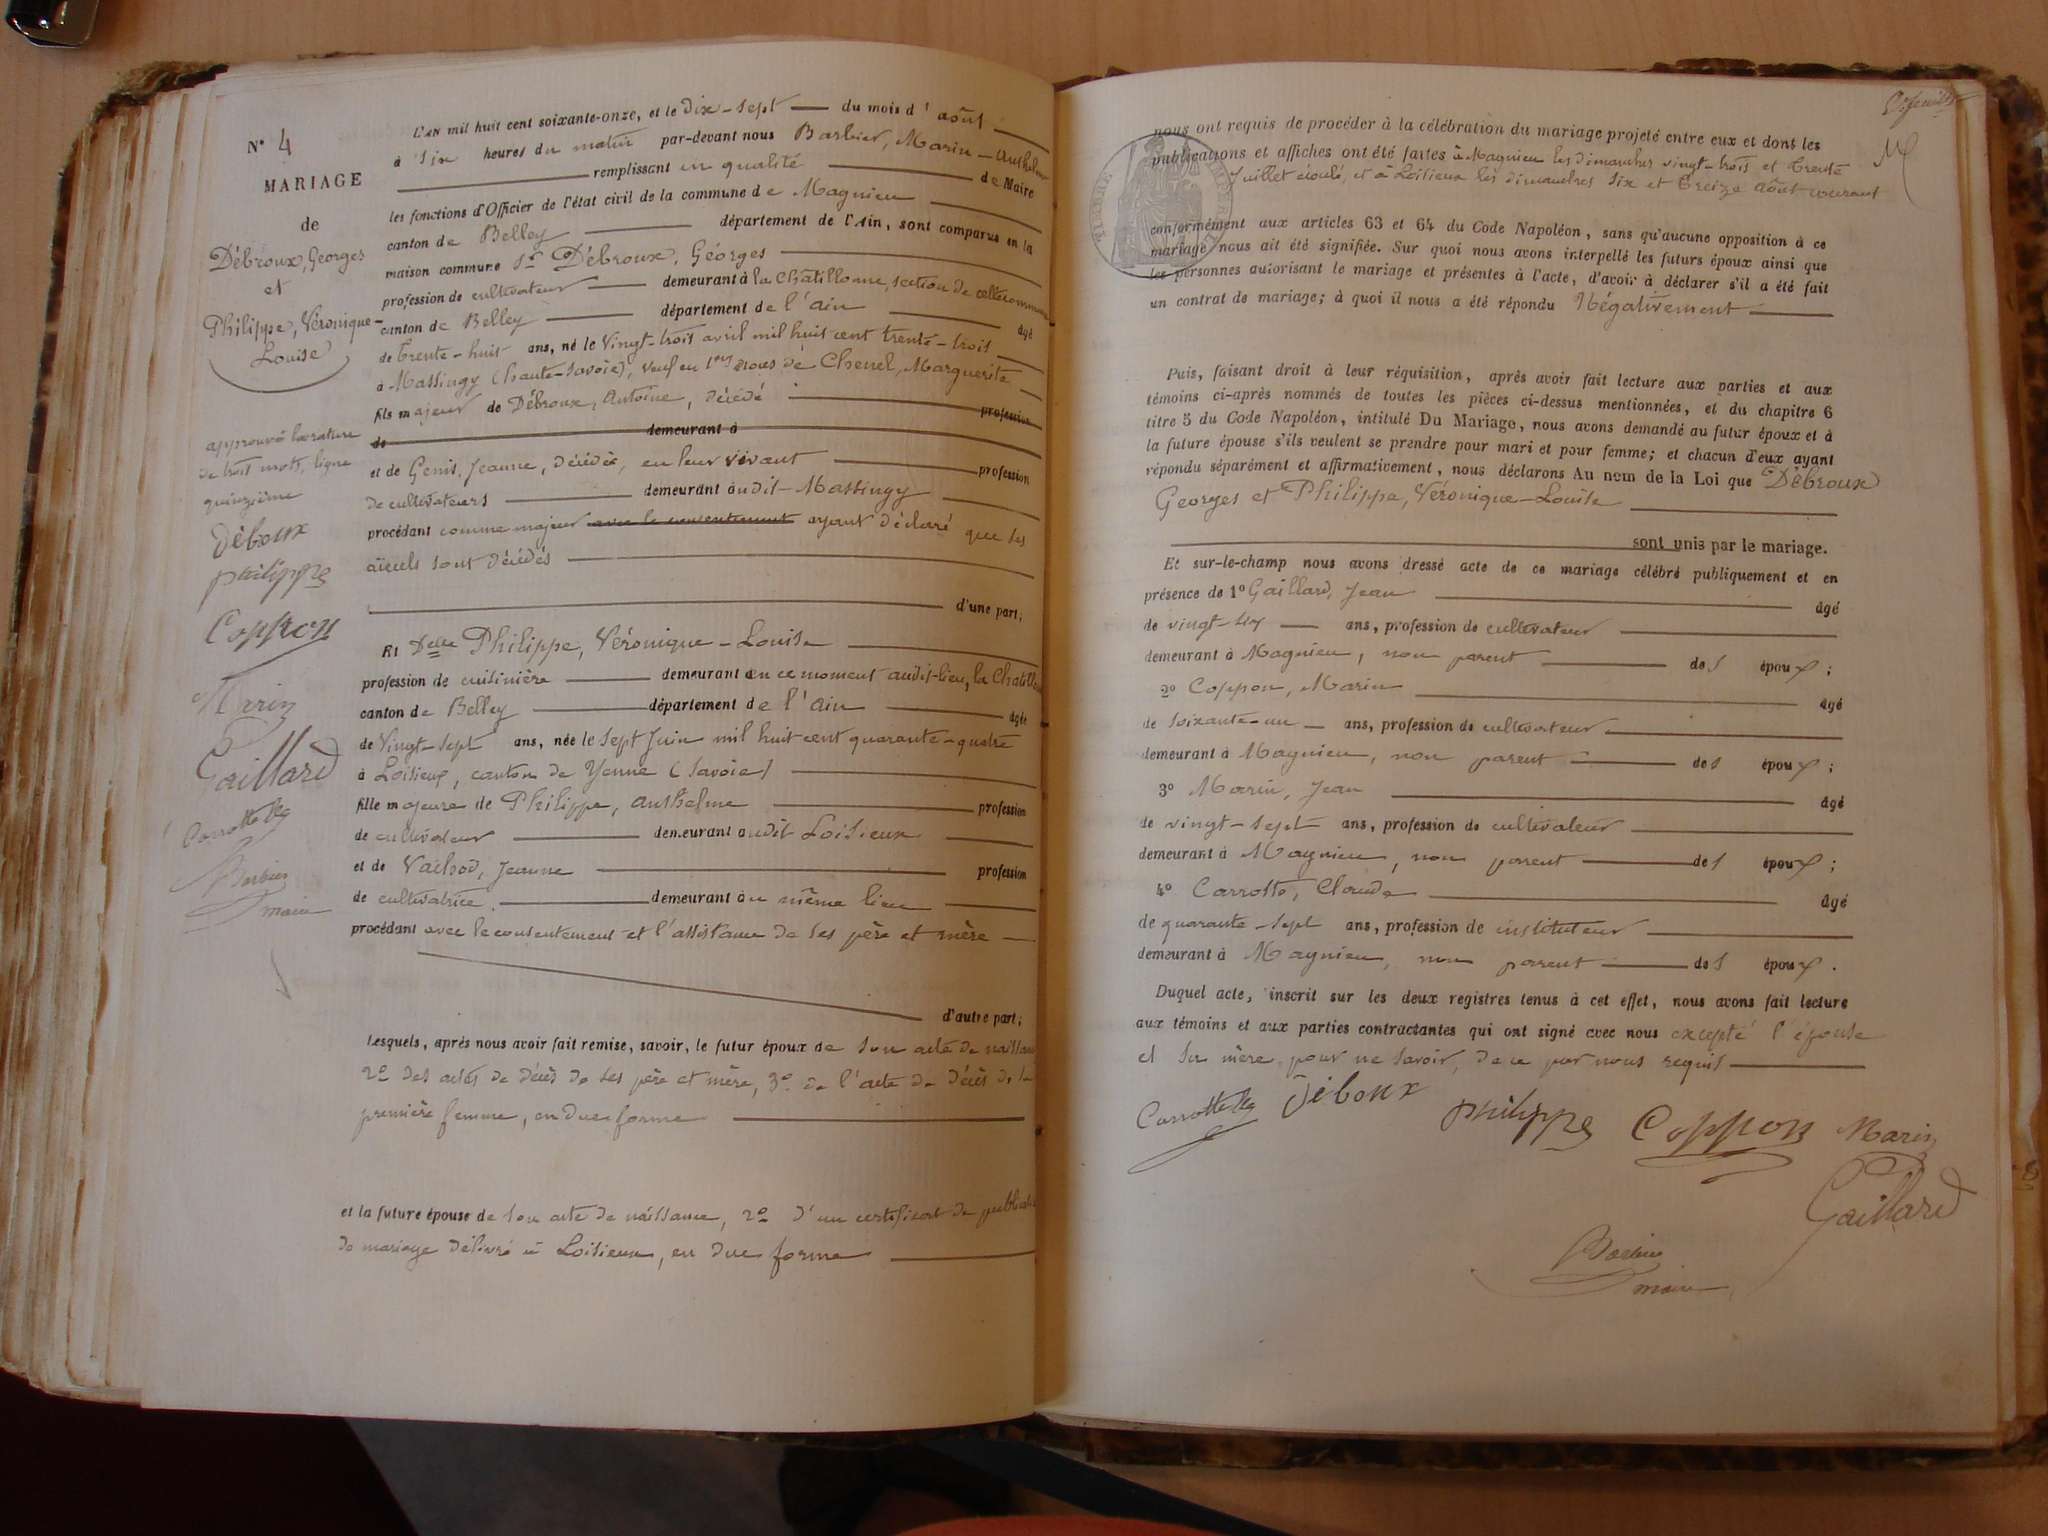 N° 4
MARIAGE
de
Débroux, Georges
et
Philippe, Véronique-
Louise
approuvé la rature
de trois mots, ligne
quinzième
Déboux
philippe
Coppon
Marin
Gaillard
Carrotte
Barbier
maire
L'AN mil huit cent soixante-onze, et le Dix-sept du mois d'août
à Six heures du matin par-devant nous Barbier, Marin-Anthelme
remplissant en qualité de Maire
les fonctions d'Officier de l'état civil de la commune de Magnieu
canton de Belley département de l'Ain, sont comparus en la
maison commune Sr Débroux, Géorges
profession de cultivateur demeurant à la Chatillonne, section de cette commune
canton de Belley département de l'ain âgé
de trente-huit ans, né le Vingt-trois avril mil huit cent trente-trois
à Massingy (haute-Savoie), veuf en 1res noces de Chenel, Marguerite
fils majeur de Débroux, Antoine, décédé profession
de demeurant à
et de Genit, Jeanne, décédée, en leur vivant profession
de cultivateurs demeurant audit-Massingy
procédant comme majeur avec le consentement ayant déclaré que ses
aïeuls sont décédés
d'une part;
Et Delle Philippe, Véronique-Louise
profession de cuisinière demeurant en ce moment audit-lieu, la Chatillonne
canton de Belley département de l'ain âgée
de Vingt-sept ans, née le sept Juin mil huit cent quarante-quatre
à Loisieux, canton de Yenne (Savoie)
fille majeure de Philippe, anthelme profession
de cultivateur demeurant audit Loisieux
et de Vachod, Jeanne profession
de cultivatrice demeurant au même lieu
procédant avec le consentement et l'assistance de ses père et mère
d'autre part;
Lesquels, après nous avoir fait remise, savoir, le futur époux de son acte de naissance
2° des actes de décès de ses père et mère, 3° de l'acte de décès de sa
première femme, en due forme
et la future épouse de son acte de naissance, 2° d'un certificat de publication
de mariage délivré à Loisieux, en due forme
nous ont requis de procéder à la célébration du mariage projeté entre eux et dont les
publications et affiches ont été faites à Magnieu les dimanches vingt-trois et trente
Juillet écoulé, et à Loisieux les dimanches six et treize août courant
conformément aux articles 63 et 64 du Code Napoléon, sans qu'aucune opposition à ce
mariage nous ait été signifiée. Sur quoi nous avons interpellé les futurs époux ainsi que
les personnes autorisant le mariage et présentes à l'acte, d'avoir à déclarer s'il a été fait
un contrat de mariage; à quoi il nous a été répondu Négativement
Puis, faisant droit à leur réquisition, après avoir fait lecture aux parties et aux
témoins ci-après nommés de toutes les pièces ci-dessus mentionnées, et du chapitre 6
titre 5 du Code Napoléon, intitulé Du Mariage, nous avons demandé au futur époux et à
la future épouse s'ils veulent se prendre pour mari et pour femme; et chacun d'eux ayant
répondu séparément et affirmativement, nous déclarons Au nom de la Loi que Débroux
Georges et Philippe, Véronique-Louise
sont unis par le mariage.
Et sur-le-champ nous avons dressé acte de ce mariage célébré publiquement et en
présence de 1° Gaillard, Jean âgé
de vingt-six ans, profession de cultivateur
demeurant à Magnieu, non parent des époux;
2° Coppon, Marin âgé
de soixante-un ans, profession de cultivateur
demeurant à Magnieu, non parent des époux;
3° Marin, Jean âgé
de vingt-sept ans, profession de cultivateur
demeurant à Magnieu, non parent des époux;
4° Carrotte, Claude âgé
de quarante-sept ans, profession de instituteur
demeurant à Magnieu, non parent des époux.
Duquel acte, inscrit sur les deux registres tenus à cet effet, nous avons fait lecture
aux témoins et aux parties contractantes qui ont signé avec nous excepté l'épouse
et sa mère, pour ne savoir, de ce par nous requis
Carrotte Déboux philippe Coppon Marin
Gaillard
Barbier
maire